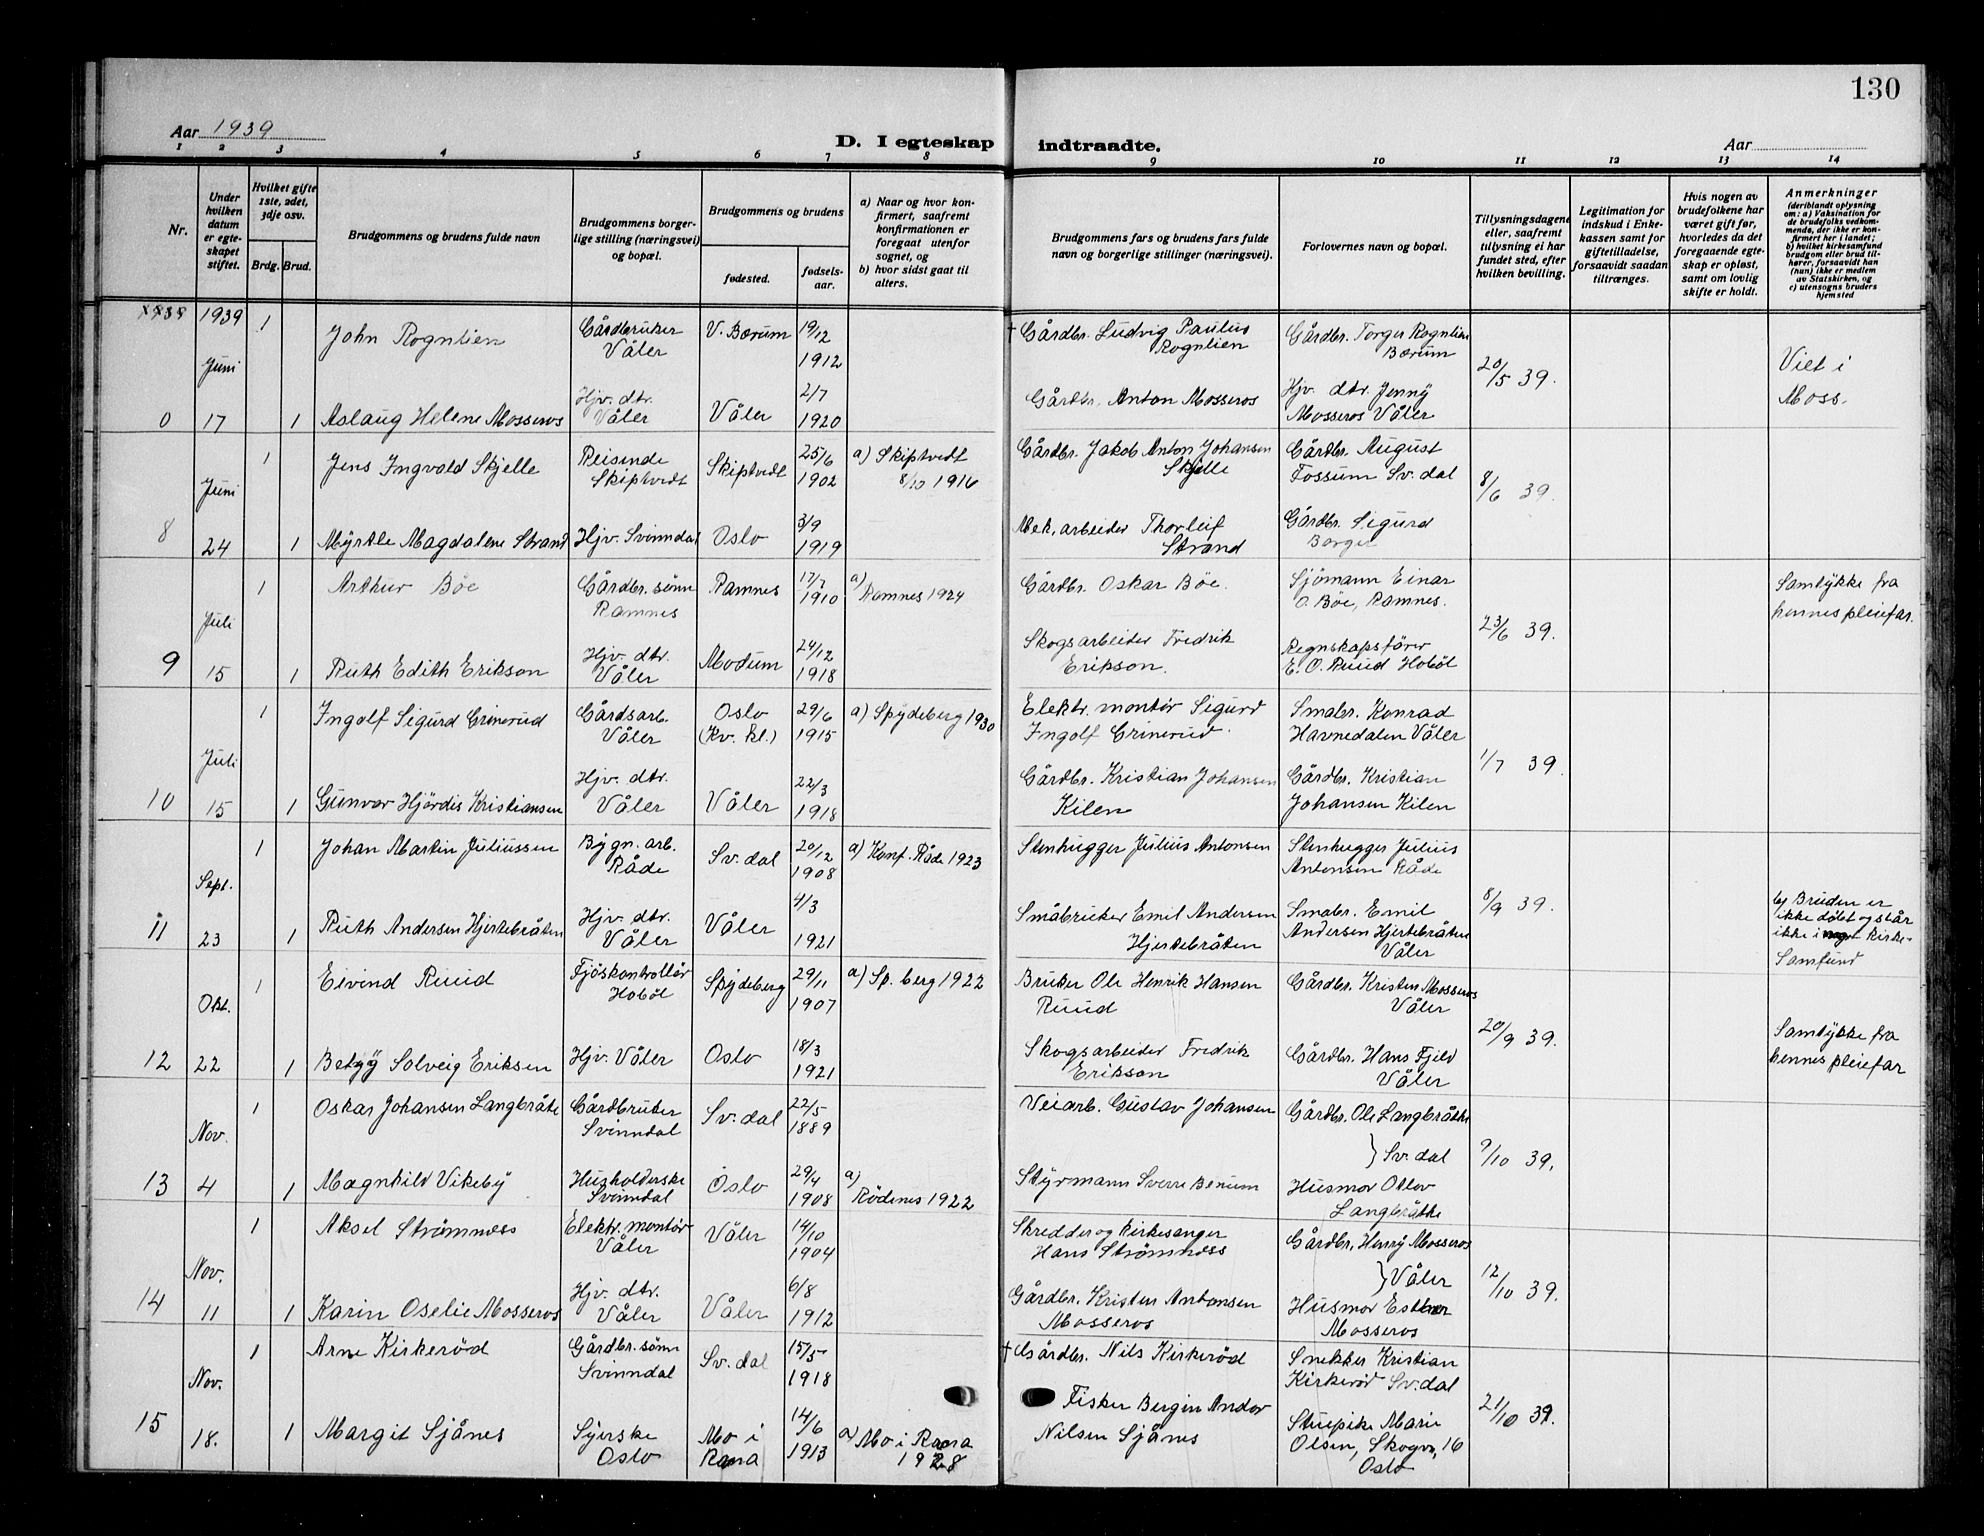 130
Aar 1939
D. I egteskap indtraadte.
Aar
1 2 3 4 5 6 7 8 9 10 11 12 13 14
Nr.
Under hvilken datum er egteskapet stiftet.
Hvilket gifte 1ste, 2det, 3dje osv.
Brdg. Brud.
Brudgommens og brudens fulde navn
Brudgommens borgerlige stilling (næringsvei) og bopæl.
Brudgommens og brudens
fødested.
fødselsaar.
a) Naar og hvor konfirmert, saafremt konfirmationen er foregaat utenfor sognet, og
b) hvor sidst gaat til alters.
Brudgommens fars og brudens fars fulde navn og borgerlige stillinger (næringsvei).
Forlovernes navn og bopæl.
Tillysningsdagene eller, saafremt tillysning ei har fundet sted, efter hvilken bevilling.
Legitimation for indskud i Enkekassen samt for giftetilladelse, forsaavidt saadan tiltrænges.
Hvis nogen av brudefolkene har været gift før, hvorledes da det foregaaende egteskap er opløst, samt om lovlig skifte er holdt.
Anmerkninger
(deriblandt oplysning om: a) Vaksination for de brudefolks vedkommende, der ikke er konfirmert her i landet; b) hvilket kirkesamfund brudgom eller brud tilhører, forsaavidt han (hun) ikke er medlem av Statskirken, og c) utensogns bruders hjemsted
1939 1 John Rognlien Gårdbruker Våler V. Bærum 19/12 1912 † Gårdbr. Ludvig Paulus Rognlien Gårdbr. Torger Rognlien Bærum 20/5 39. Viet i Moss.
0 Juni 17 1 Aslaug Helene Mosseros Hjv. dtr. Våler Våler 2/7 1920 Gårdbr. Anton Mosseros Hjv. dtr. Jenny Mosseros Våler
1 Jens Ingvald Skjelle Reisende Skiptvedt Skiptvedt 25/6 1902 a) Skiptvedt 8/10 1916 Gårdbr. Jakob Anton Johansen Skjelle Gårdbr. August Fossum Sv. dal 8/6 39.
8 Juni 24 1 Myrtle Magdalene Strand Hjv. Svinndal Oslo 3/9 1919 Mek. arbeider Thorleif Strand Gårdbr. Sigurd Borger
1 Arthur Böe Gårdbr. sönn Ramnes Ramnes 17/7 1910 a) Ramnes 1924 Gårdbr. Oskar Böe. Sjömann Einar O. Böe, Ramnes. 23/6 39. Samtykke fra hennes pleiefar.
9 Juli 15 1 Ruth Edith Erikson Hjv. dtr. Våler Modum 24/12 1918 Skogsarbeider Fredrik Erikson. Regnskapsförer E. O. Ruud Hoböl
1 Ingolf Sigurd Grinerud Gårdsarb. Våler Oslo (Kv. kl.) 29/6 1915 a) Spydeberg 1930 Elektr. montör Sigurd Ingolf Grinerud. Småbr. Konrad Havnedalen Våler 1/7 39.
10 Juli 15 1 Gunvor Hjördis Kristiansen Hjv. dtr. Våler Våler 22/3 1918 Gårdbr. Kristian Johansen Kilen Gårdbr. Kristian Johansen Kilen
1 Johan Martin Juliussen Bygn. arb. Råde Sv. dal 20/12 1908 a) Konf. Råde 1923 Stenhugger Julius Antonsen Stenhugger Julius Antonsen Råde 8/9 39.
11 Sept. 23 1 Ruth Andersen Hjertebråten Hjv. dtr. Våler Våler 4/3 1921 Småbruker Emil Andersen Hjertebråten Småbr. Emil Andersen Hjertebråten Våler b) Bruden er ikke döbt og står ikke i noget kirkesamfund
1 Eivind Ruud Fjöskontrollör Hoböl Spydeberg 29/11 1907 a) Sp. berg 1922 Bruker Ole Henrik Hansen Ruud Gårdbr. Kristen Mosseros Våler 20/9 39.
12 Okt. 22 1 Betsy Solveig Eriksen Hjv. Våler Oslo 18/3 1921 Skogsarbeider Fredrik Erikson Gårdbr. Hans Fjeld Våler Samtykke fra hennes pleiefar
1 Oskar Johansen Langbråte Gårdbruker Svinndal Sv. dal 22/5 1889 Veiarb. Gustav Johansen Gårdbr. Ole Langbråtke } Sv. dal 9/10 39.
13 Nov. 4 1 Magnhild Vikeby Husholderske Svinndal Oslo 29/4 1908 a) Rödenes 1922 Styrmann Sverre Benum Husmor Otlov Langbråtke
1 Aksel Strömnæss Elektr. montör Våler Våler 14/10 1904 Skredder og kirkesanger Hans Strömnæss Gårdbr. Henry Mosseros } Våler 12/10 39.
14 Nov. 11 1 Karin Oselie Mosseros Hjv. dtr. Våler Våler 6/8 1912 Gårdbr. Kristen Antonsen Mosseros Husmor Esther Mosseros
1 Arne Kirkeröd Gårdbr. sönn Svinndal Sv. dal 15/5 1918 † Gårdbr. Nils Kirkeröd Snekker Kristian Kirkeröd Sv. dal 21/10 39.
15 Nov. 18. 1 Margit Sjånes Syerske Oslo Mo i Rana 14/6 1913 a) Mo i Rana 1928 Fisker Bergin Andor Nilsen Sjånes Stuepike Marie Olsen, Skogv. 16 Oslo